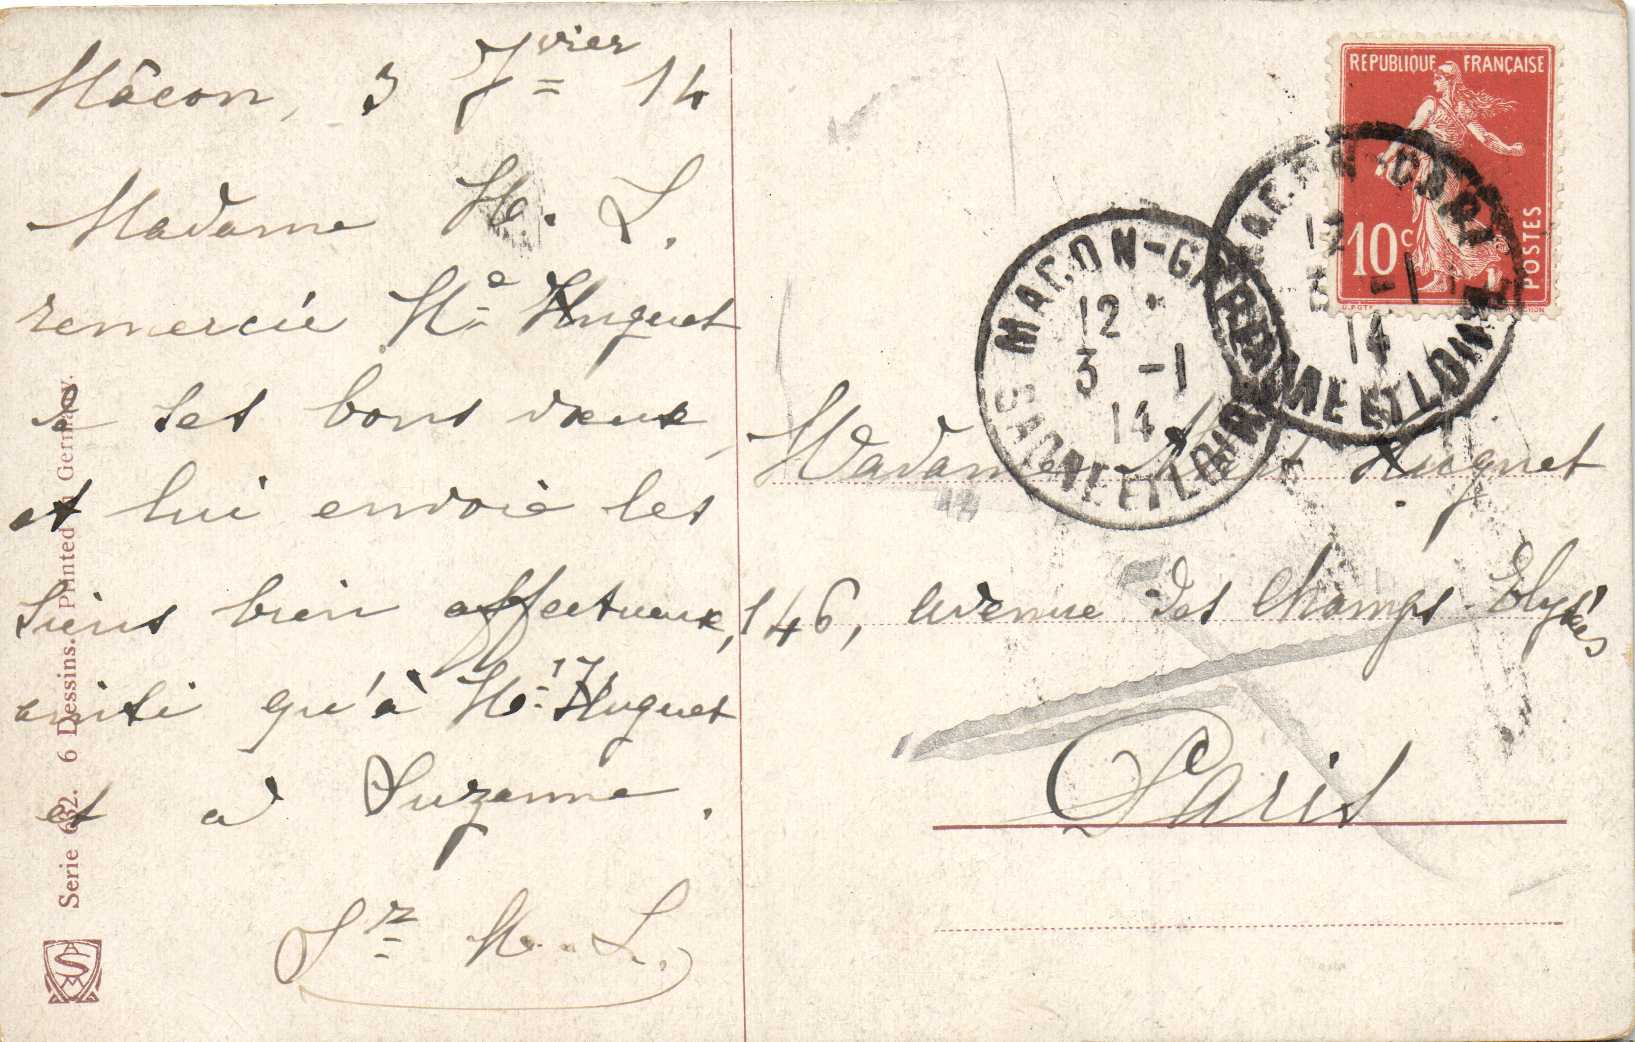 Mâcon, 3 Jvier 14
Madame M. L.
remercie Me Huguet
de ses bons vœux,
et lui envoie les
siens bien affectueux,
ainsi qu'à Mr Huguet
et à Suzanne.
M. L.
Serie 632. 6 Dessins. Printed in Germany.
REPUBLIQUE FRANÇAISE
10c
POSTES
MACON-GARE
12
3 -1
14
SAONE ET LOIRE
MACON-GARE
12
3 -1
14
SAONE ET LOIRE
Madame Huguet
146, avenue des Champs-Elysées
Paris